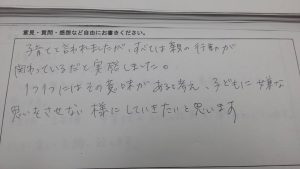 意見・質問・感想など自由にお書きください。
子育てと言われましたが、すべては親の行動が
関わっているだと実感しました。
1つ1つにはその意味があると考え、子どもに嫌な
思いをさせない様にしていきたいと思います